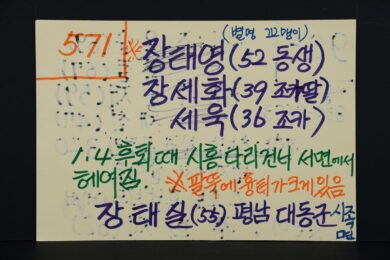 571
(별명 꼬맹이)
※ 장태영(52 동생)
장세화(39 조카딸)
세욱(36 조카)
1.4 후퇴 때 시흥 다리건너 서면에서
헤여짐. ※팔뚝에 흉터가 크게 있음
장태실(55) 평남 대동군 시족
면